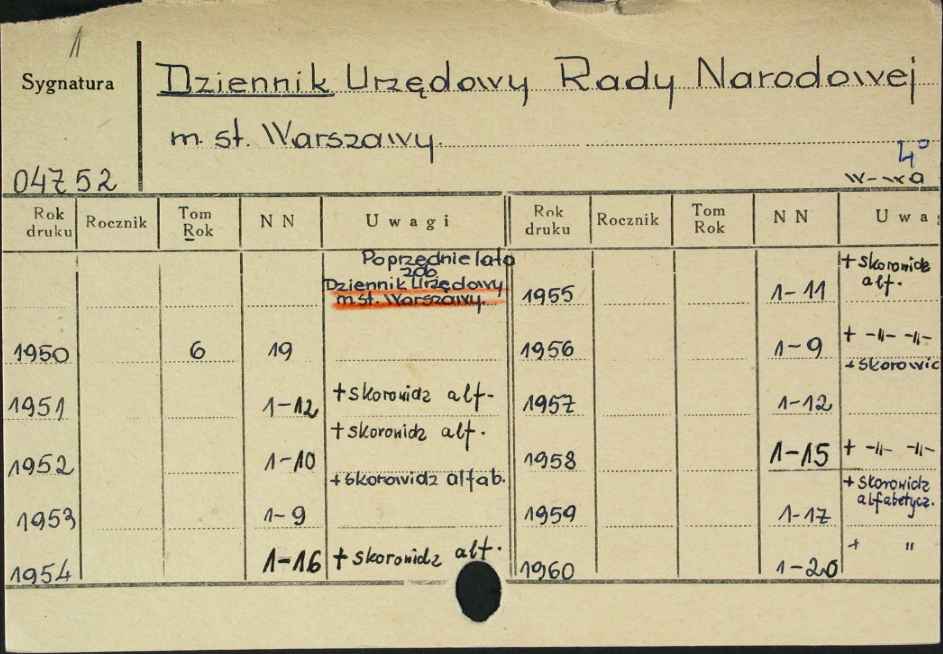 1
Sygnatura
Dziennik Urzędowy Rady Narodowej
m. st. Warszawy.
4°
04752 W-wa
Rok druku Rocznik Tom Rok N N Uwagi Rok druku Rocznik Tom Rok N N Uwa
Poprzednie lata
zob.
Dziennik Urzędowy
m. st. Warszawy.
1950 6 19
1951 1-12 + skorowidz alf.
1952 1-10 + skorowidz alf.
1953 1-9 + skorowidz alfab.
1954 1-16 + skorowidz alf.
1955 1-11 + skorowidz alf.
1956 1-9 + -"- -"-
1957 1-12 + skorowid
1958 1-15 + -"- -"-
1959 1-17 + skorowidz alfabetycz.
1960 1-20 + "